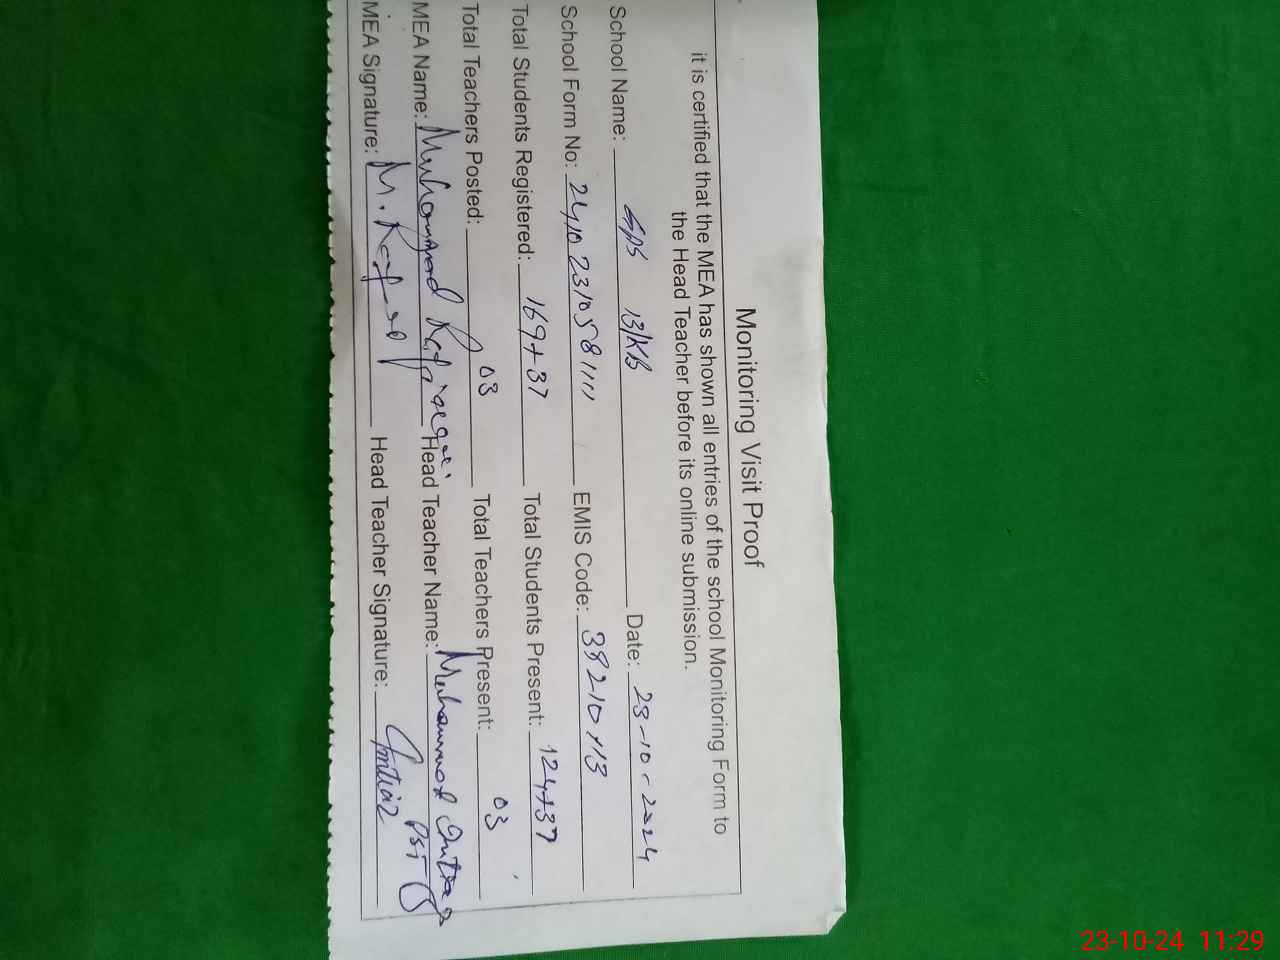 Monitoring Visit Proof
it is certified that the MEA has shown all entries of the school Monitoring Form to
the Head Teacher before its online submission.
School Name: GPS 13/KB Date: 23-10-2024
School Form No: 24102310581111 EMIS Code:
Total Students Registered: 169+37 Total Students Present: 124+37
Total Teachers Posted: 03 Total Teachers Present: 03
MEA Name: Muhammad Head Teacher Name: Muhammad
MEA Signature: Head Teacher Signature: Imtiaz
23-10-24 11:29